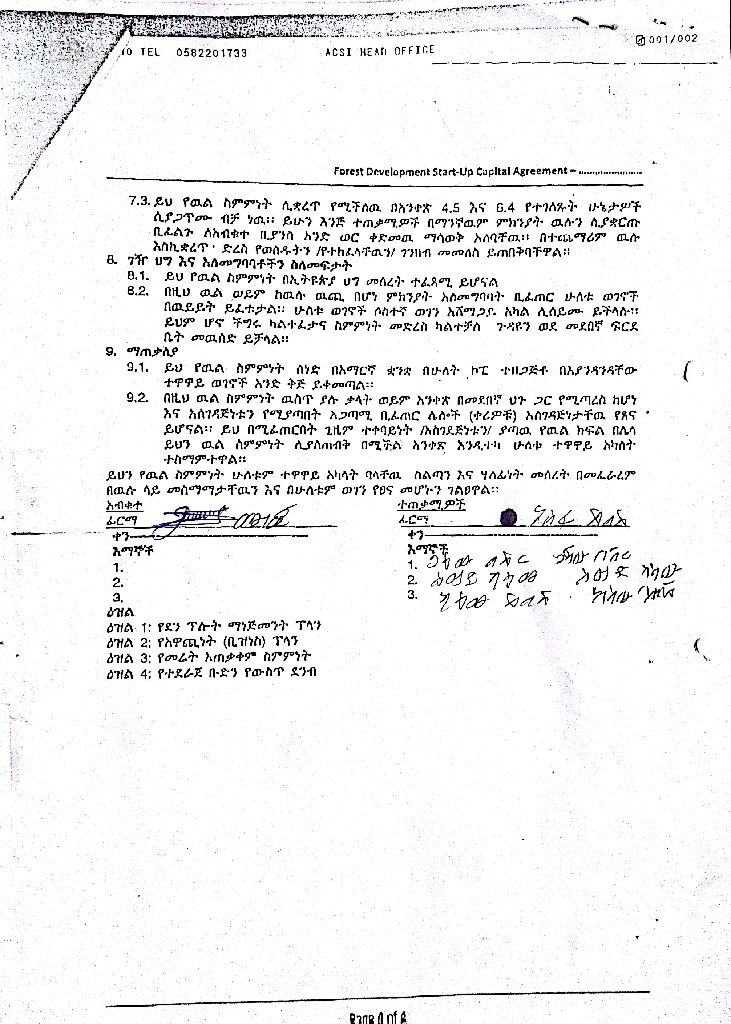 TEL 0582201733 ACSI HEAD OFFICE 001/002
Forest Development Start-Up Capital Agreement – ........................
7.3. ይህ የዉል ስምምነት ሊቋረጥ የሚችለዉ በአንቀጽ 4.5 እና 6.4 የተገለጹት ሁኔታዎች
ሲያጋጥሙ ብቻ ነዉ፡፡ ይሁን እንጅ ተጠቃሚዎች በማንኛዉም ምክንያት ዉሉን ሲያቋርጡ
ቢፈልጉ ለአብቁተ ቢያንስ አንድ ወር ቀድመዉ ማሳወቅ አለባቸዉ፡፡ በተጨማሪም ዉሉ
እስኪቋረጥ ድረስ የወሰዱትን /የተከፈላቸዉን/ ገንዘብ መመለስ ይጠበቅባቸዋል፡፡
8. ገዥ ህግ እና አለመግባባቶችን ስለመፍታት
8.1. ይህ የዉል ስምምነት በኢትዮጵያ ህግ መሰረት ተፈጻሚ ይሆናል
8.2. በዚህ ዉል ወይም ከዉሉ ዉጪ በሆነ ምክንያት አለመግባባት ቢፈጠር ሁለቱ ወገኖች
በዉይይት ይፈቱታል፡፡ ሁለቱ ወገኖች ሶስተኛ ወገን አሸማጋይ አካል ሊሰይሙ ይችላሉ፡፡
ይህም ሆኖ ችግሩ ካልተፈታና ስምምነት መድረስ ካልተቻለ ጉዳዩን ወደ መደበኛ ፍርድ
ቤት መዉሰድ ይቻላል፡፡
9. ማጠቃለያ
9.1. ይህ የዉል ስምምነት ሰነድ በአማርኛ ቋንቋ በሁለት ኮፒ ተዘጋጅቶ በእያንዳንዳቸው
ተዋዋይ ወገኖች አንድ ቅጅ ይቀመጣል፡፡
9.2. በዚህ ዉል ስምምነት ዉስጥ ያሉ ቃላት ወይም አንቀጽ በመደበኛ ህጉ ጋር የሚጣረስ ከሆነ
እና አስገዳጅነቱን የሚያጣበት አጋጣሚ ቢፈጠር ሌሎች (ቀሪዎቹ) አስገዳጅነታቸዉ የጸና
ይሆናል፡፡ ይህ በሚፈጠርበት ጊዜም ተቀባይነት /አስገደጅነቱን/ ያጣዉ የዉል ክፍል በሌላ
ይህን ዉል ስምምነት ሊያስጠብቅ በሚችል አንቀጽ እንዲተካ ሁለቱ ተዋዋይ አካለት
ተስማምተዋል፡፡
ይህን የዉል ስምምነት ሁለቱም ተዋዋይ አካላት ባላቸዉ ስልጣን እና ሃላፊነት መሰረት በመፈራረም
በዉሉ ላይ መስማማታቸዉን እና በሁለቱም ወገን የፀና መሆኑን ገልፀዋል፡፡
አብቁተ ተጠቃሚዎች
ፊርማ ፊርማ
ቀን ቀን
እማኞች እማኞች
1. 1.
2. 2.
3. 3.
ዕዝል
ዕዝል 1: የደን ፕሎት ማነጅመንት ፕላን
ዕዝል 2: የአዋጪነት (ቢዝነስ) ፕላን
ዕዝል 3: የመሬት አጠቃቀም ስምምነት
ዕዝል 4: የተደራጀ ቡድን የውስጥ ደንብ